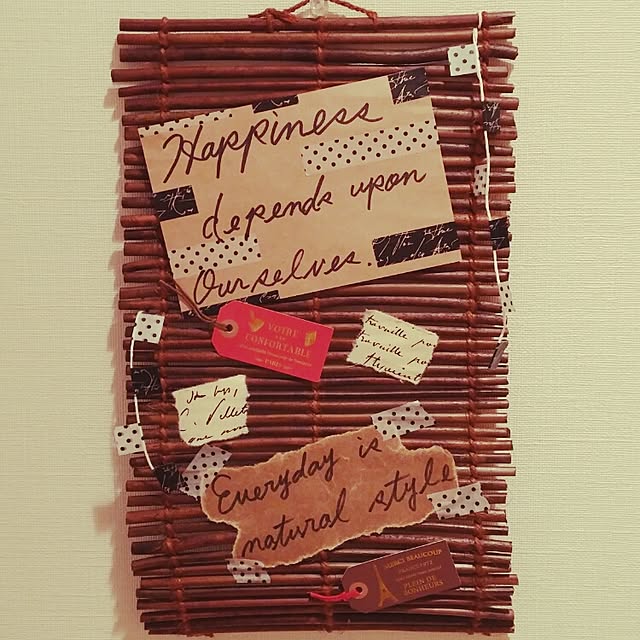 Happiness
depends upon
Ourselves.
VOTRE
CONFORTABLE
PARIS
travaille pa
travaille pa
Everyday is
natural style
MERCI BEAUCOUP
PLEIN DE
BONHEURS